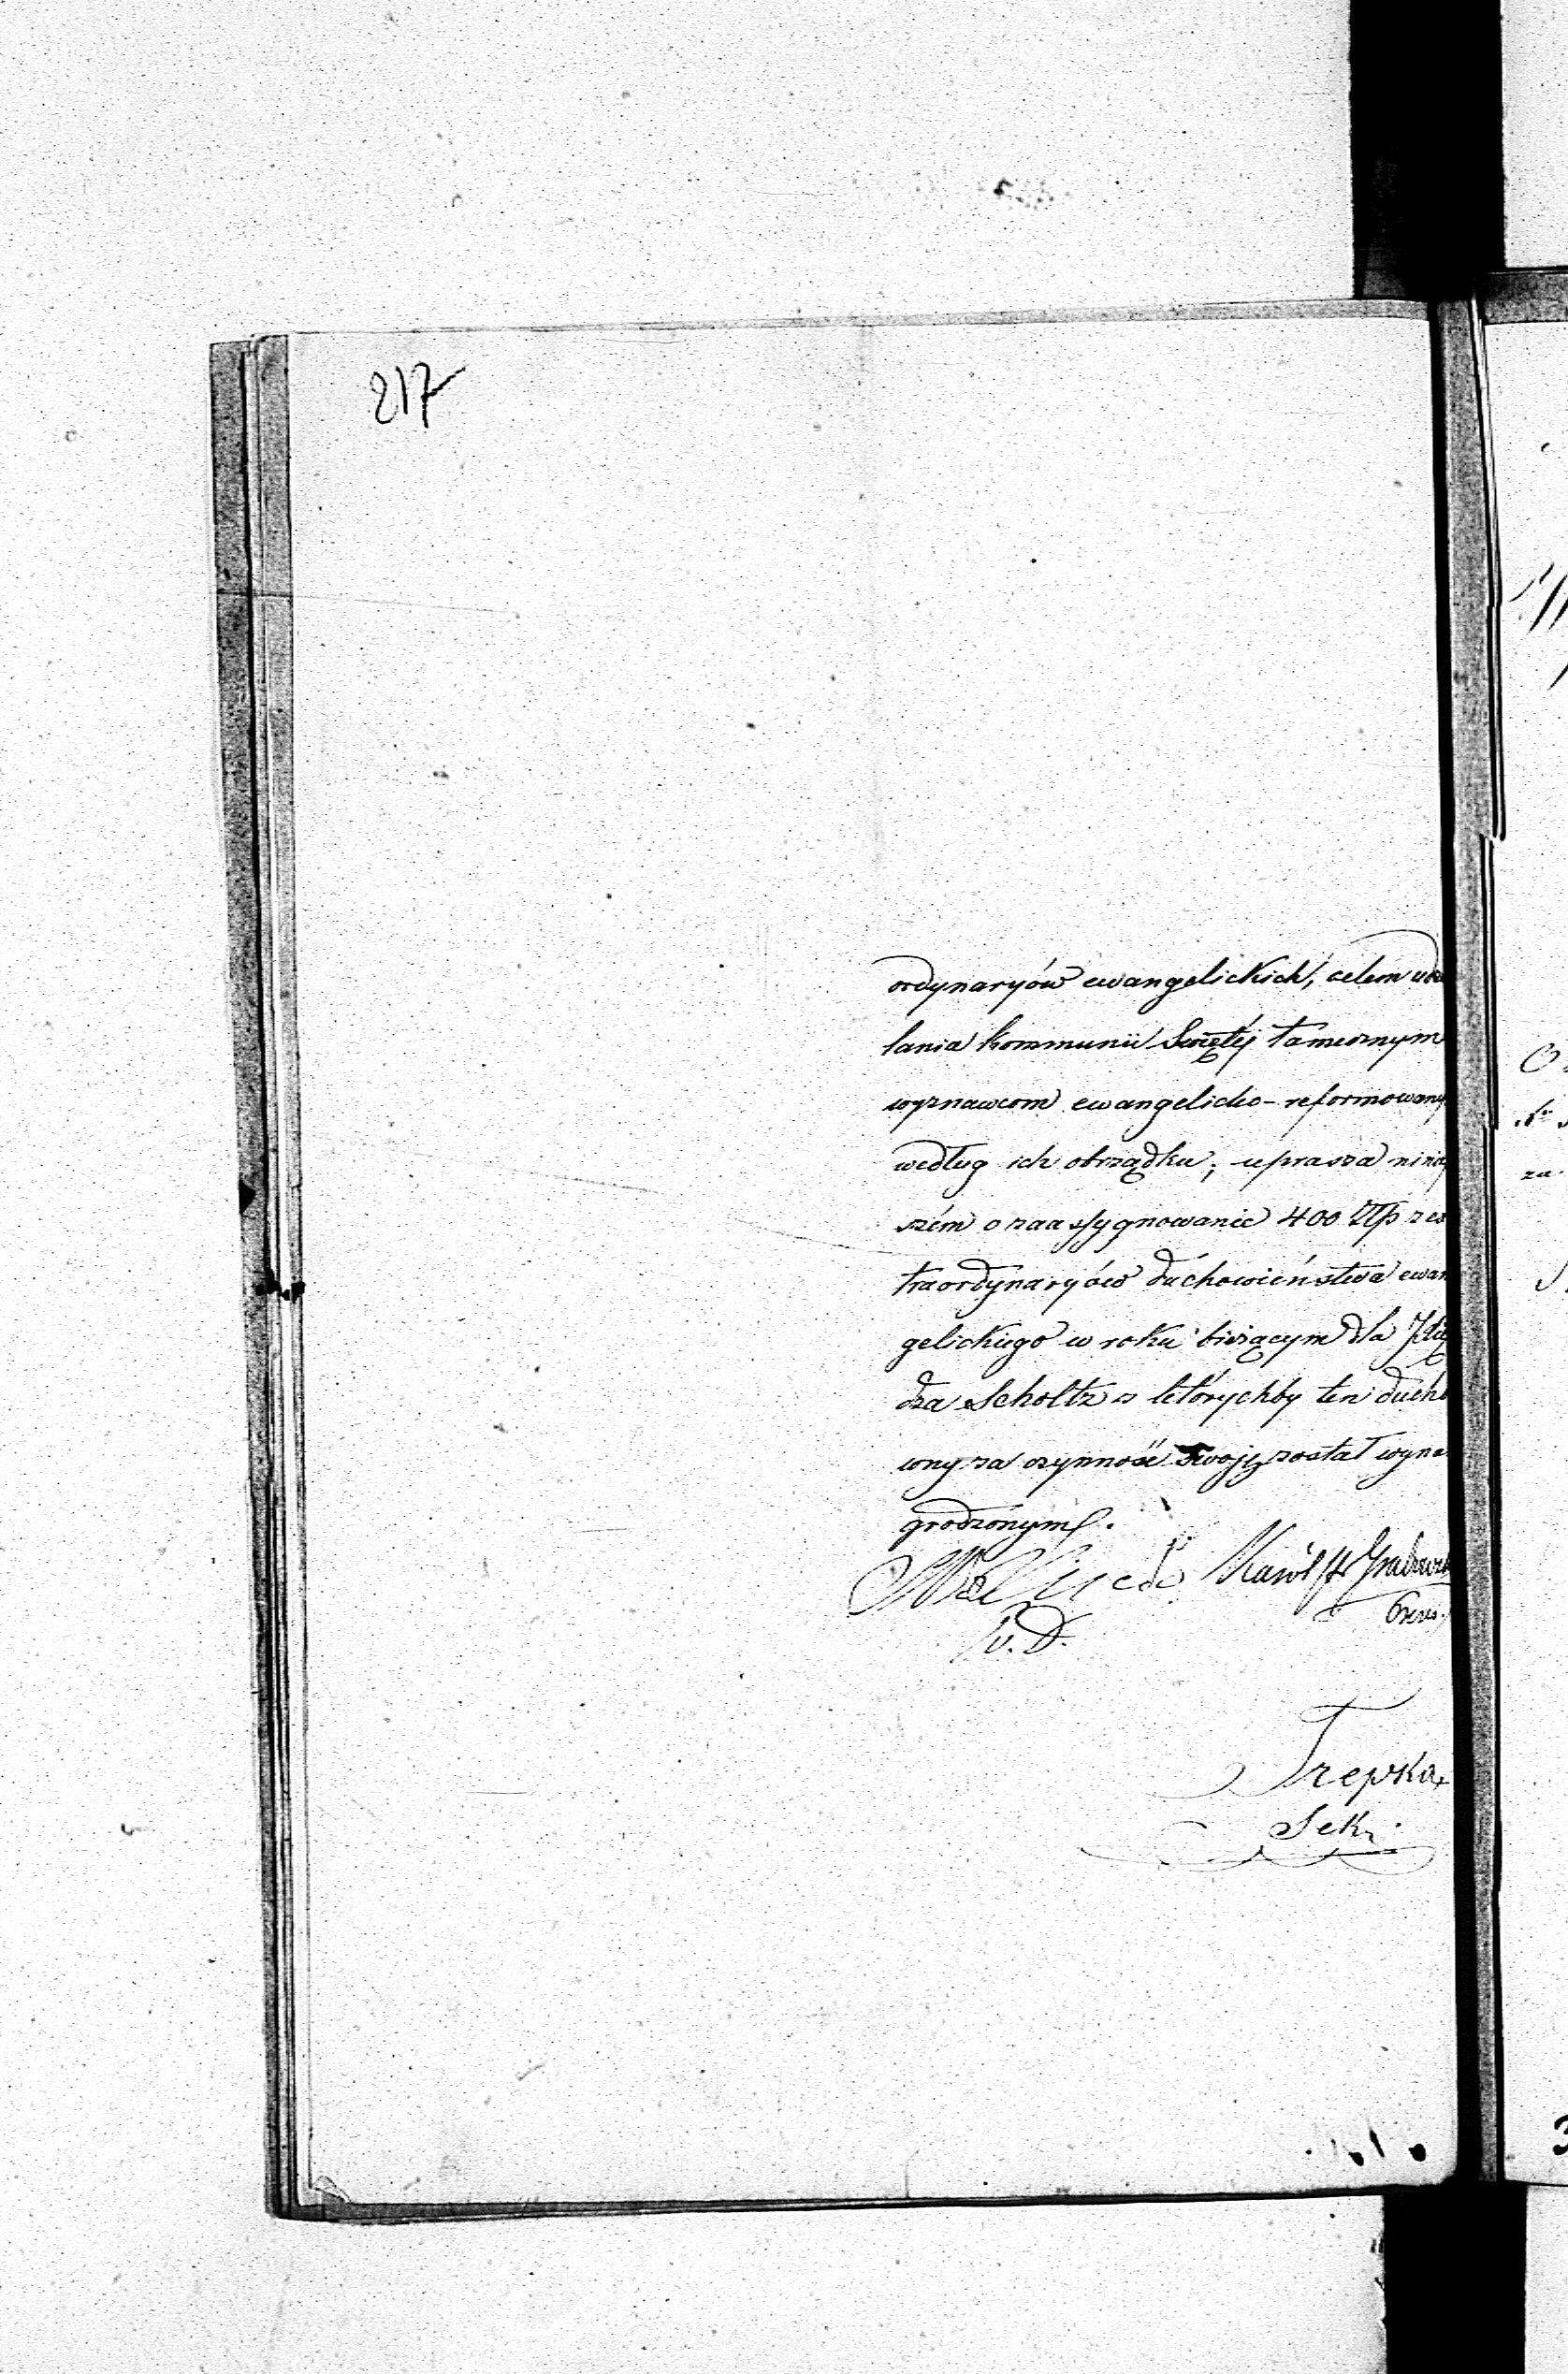 217
ordynaryów ewangelickich, celem udzie
lania kommunii Swiętéj tamecznym
wyznawcom ewangelicko-reformowany
według ich obrządku; uprasza niniej
szém o zaassygnowanie 400 Złp z ex
traordynaryów duchowieństwa ewan
gelickiego w roku bieżącym dla Xię
dza Scholtz z którychby ten ducho
wny za czynność swoję został wyna
grodzonym.
Karól
Prezes
v. D.
Trepka
Sekr.